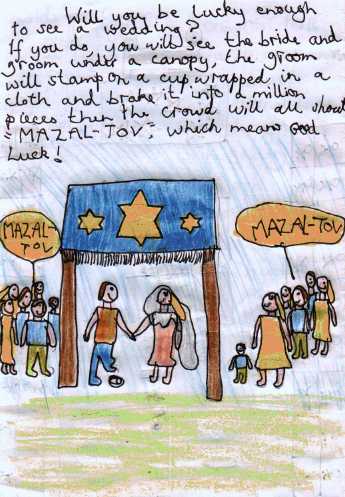 Will you be lucky enough
to see a wedding?
If you do, you will see the bride and
groom under a canopy, the groom
will stamp on a cup wrapped in a
cloth and brake it into a million
pieces then the crowd will all shout
"MAZAL-TOV", which means Good
Luck!
MAZAL-
TOV
MAZAL-TOV